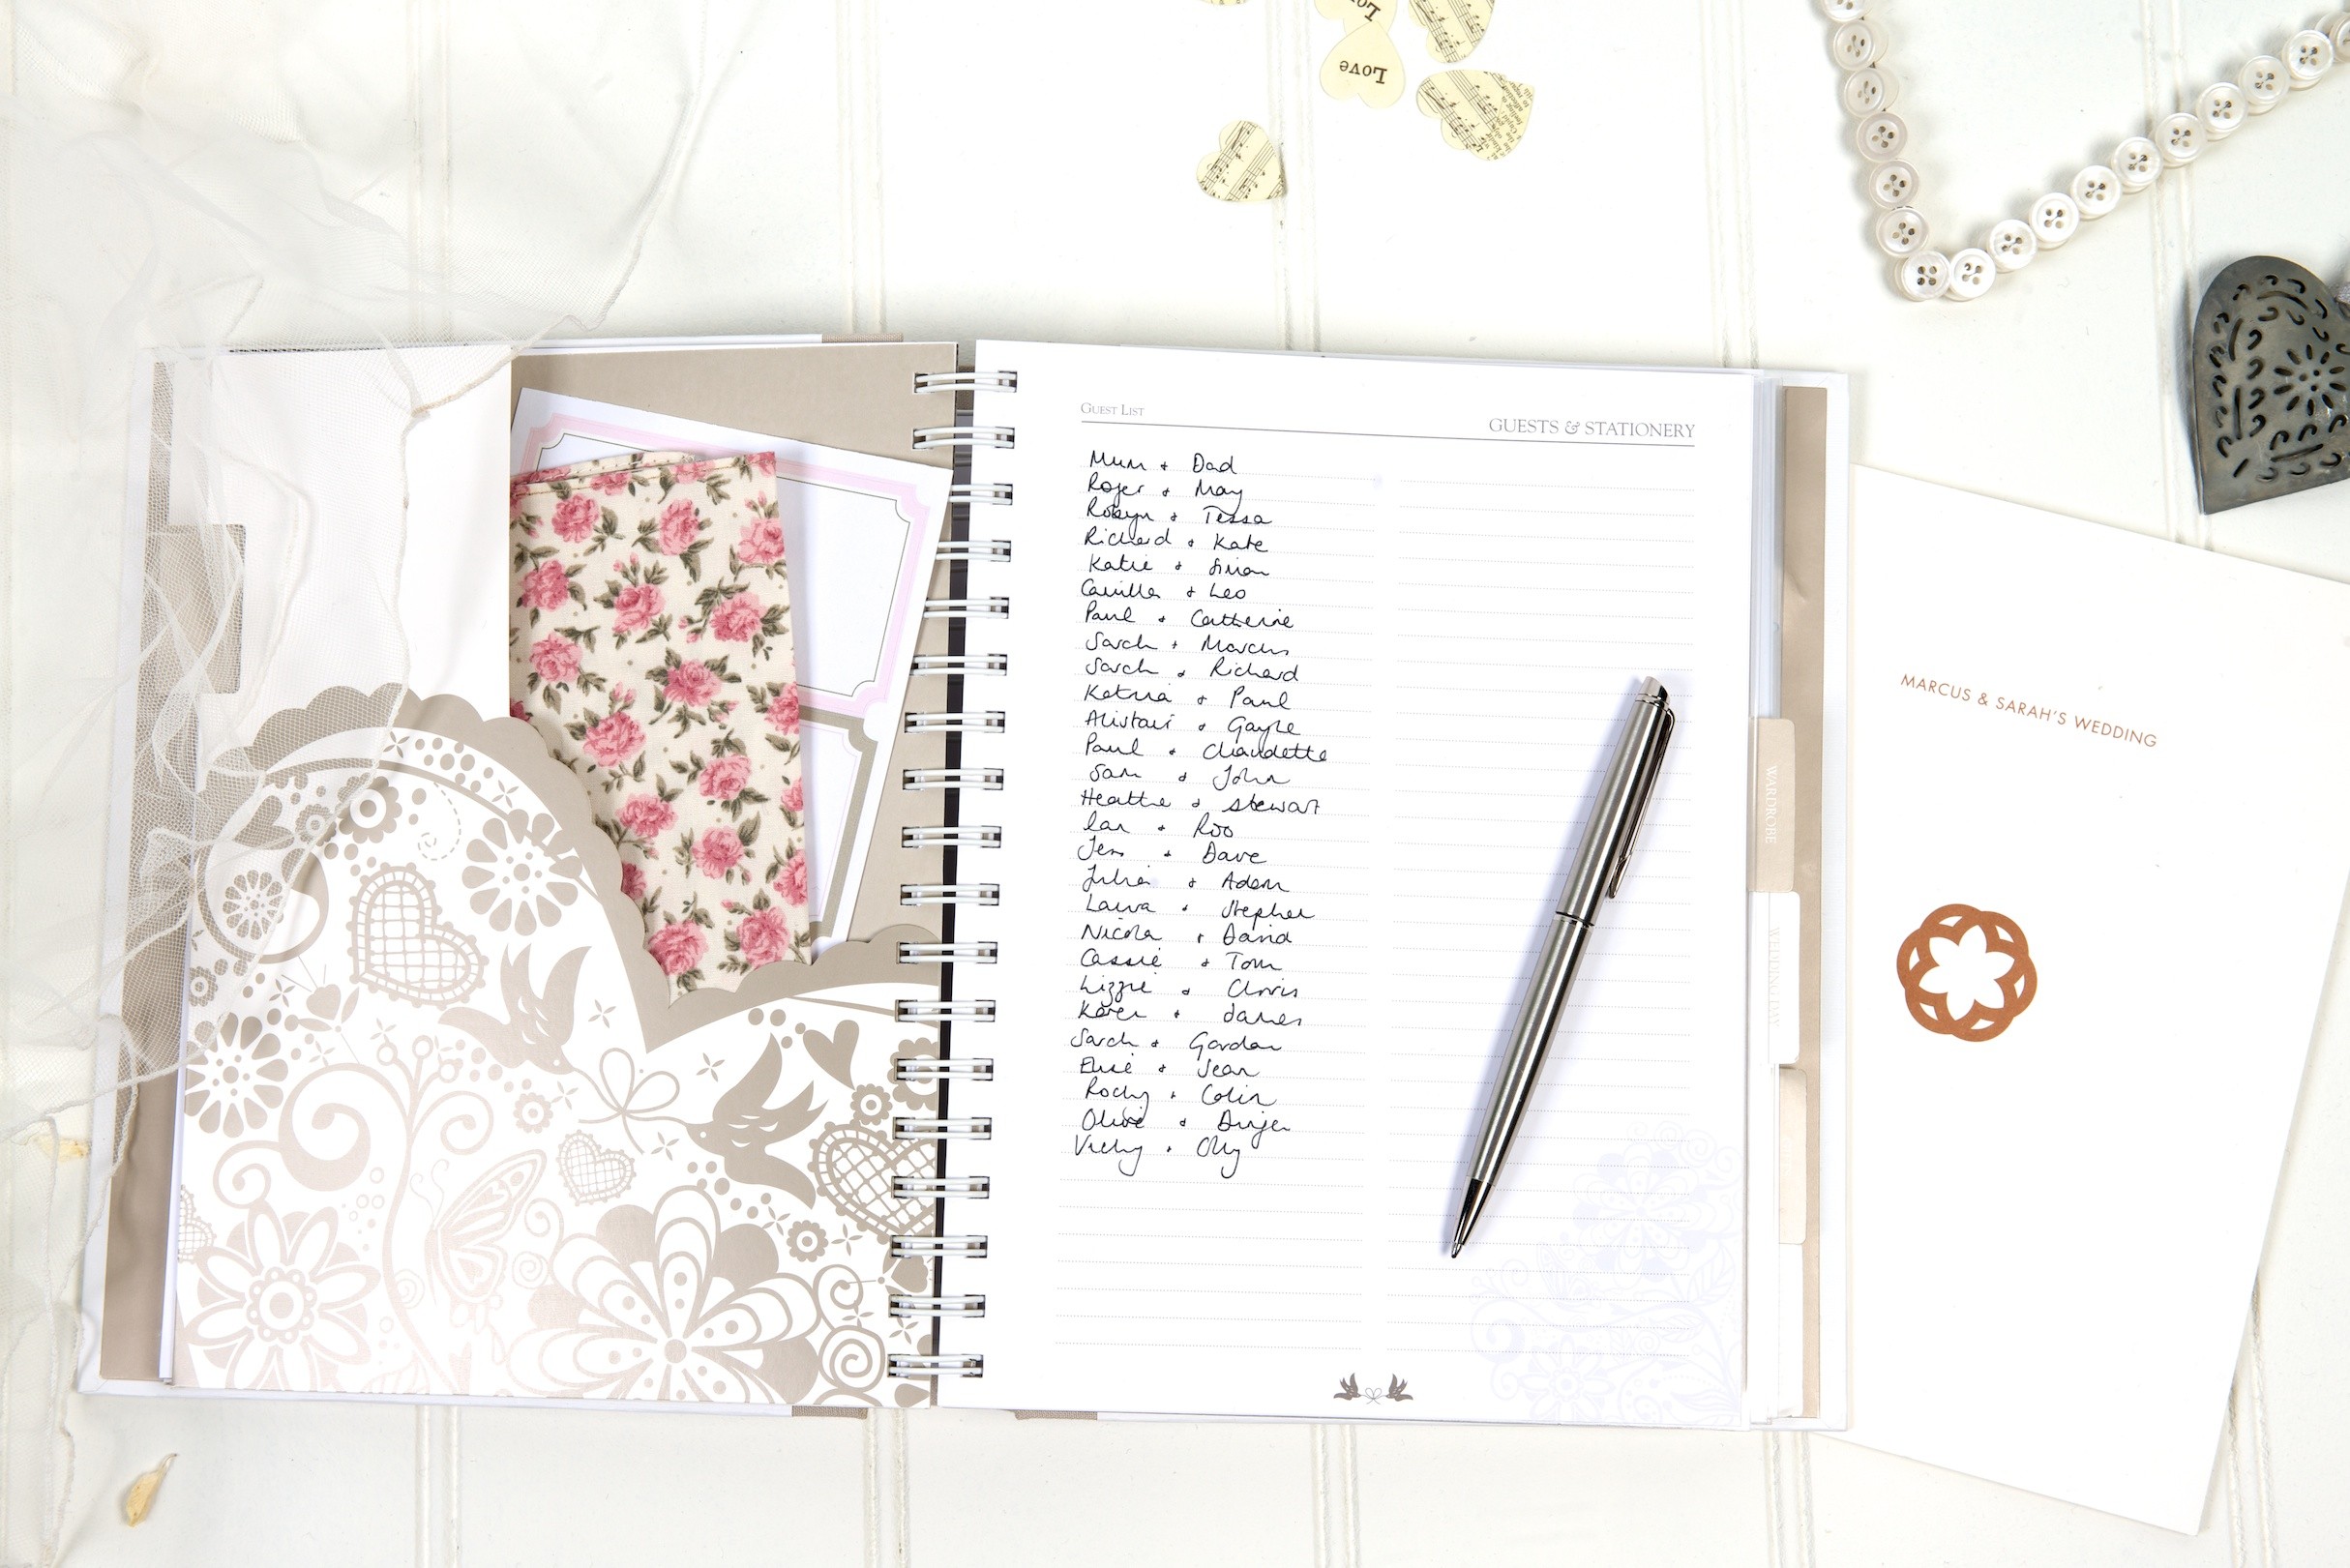 Love
Love
GUEST LIST
GUESTS & STATIONERY
Mum + Dad
Roger + May
Robyn + Tessa
Richard + Kate
Katie + Simon
Camilla + Leo
Paul + Catherine
Sarah + Marcus
Sarah + Richard
Katrina + Paul
Alistair + Gayle
Paul + Claudette
Sam + John
Heather + Stewart
Ian + Roo
Jess + Dave
Julia + Adam
Laura + Stephen
Nicola + David
Cassie + Tom
Lizzie + Chris
Karen + James
Sarah + Gordon
Elsie + Jean
+ Colin
Olive +
Vicky + Olly
WARDROBE
WEDDING DAY
MARCUS & SARAH'S WEDDING